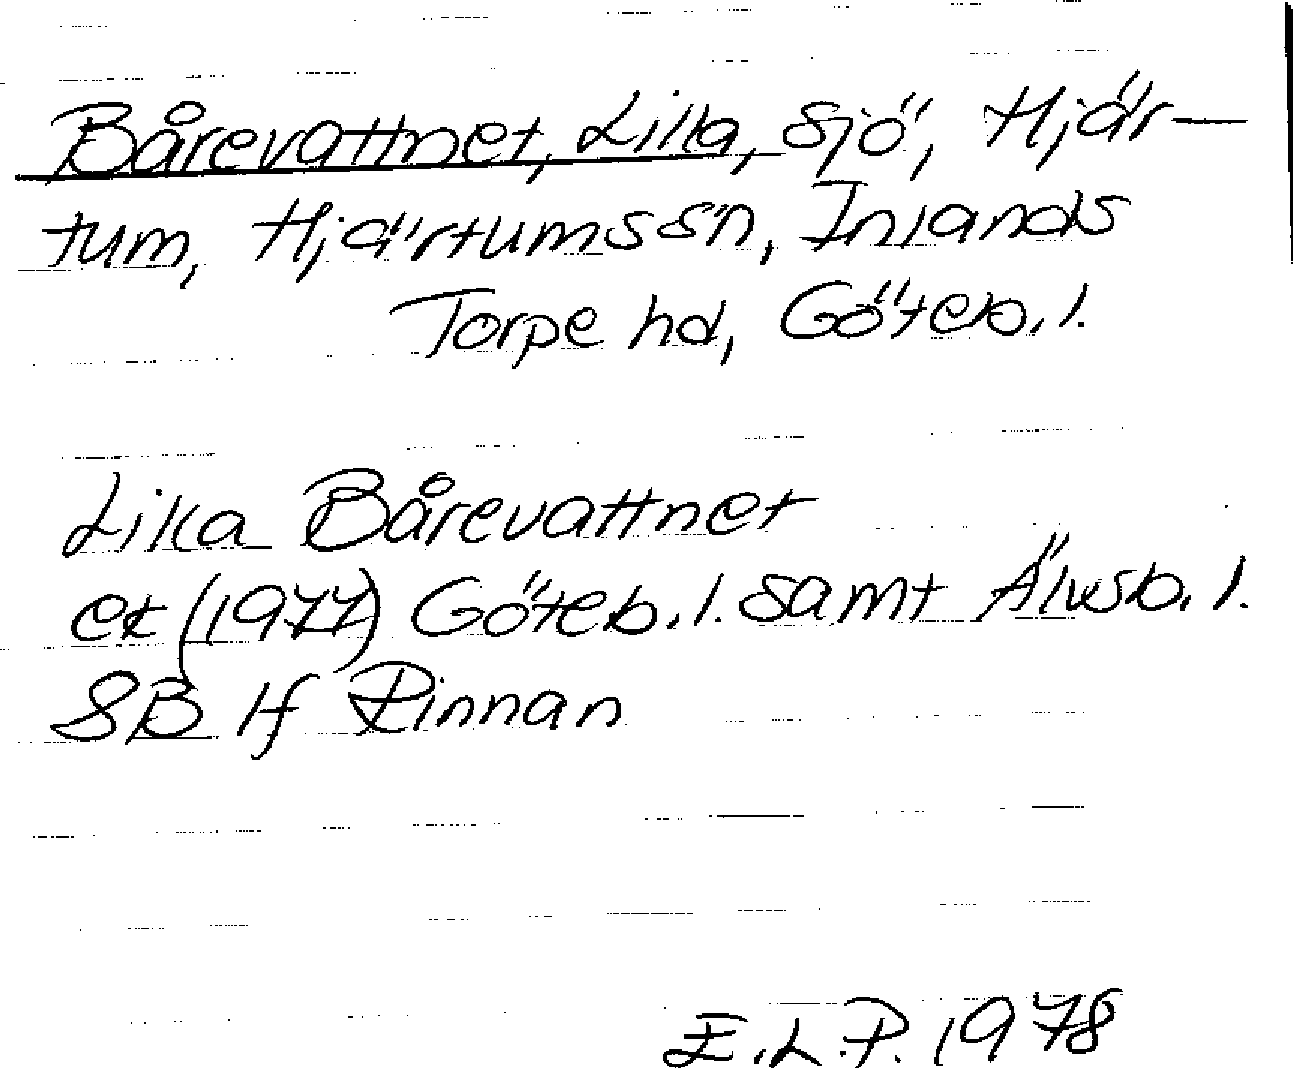 Bårevattnet, Lilla, sjö, Hjär-
tum, Hjärtums sn, Inlands
Torpe hd, Göteb. l.
Lilla Bårevattnet
ek (1977) Göteb. l. samt Älvsb. l.
8B 1f Rinnan
E.L.P. 1978